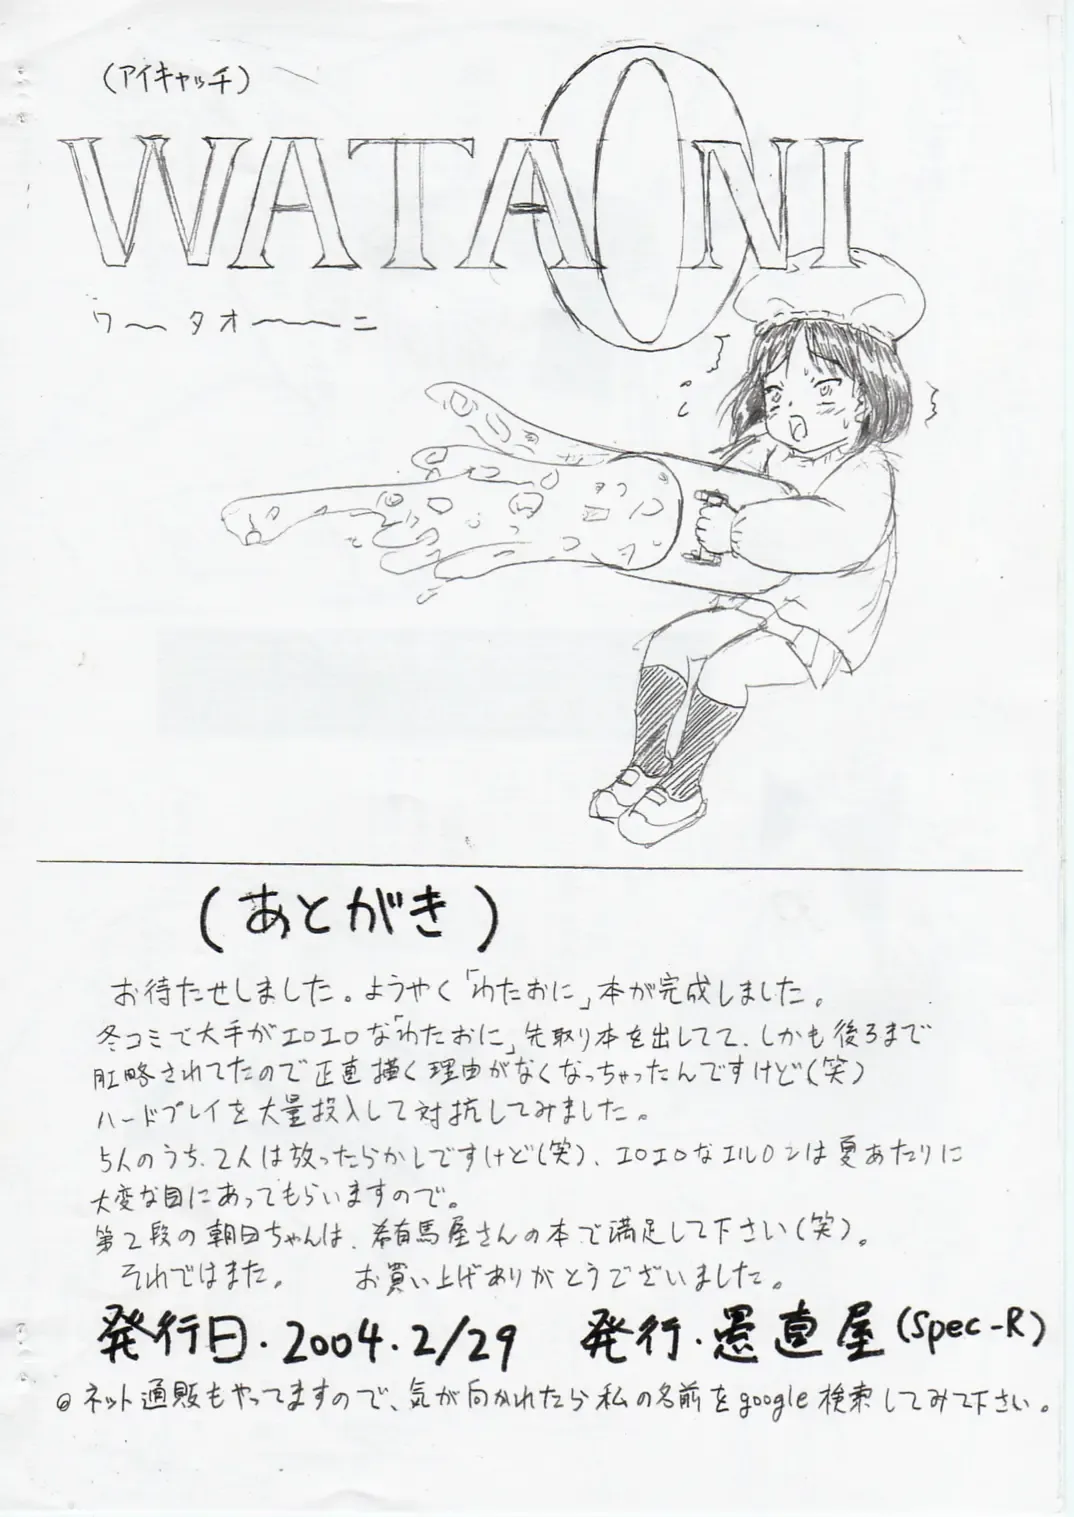 (アイキャッチ)
WATAONI
ワ〜タオ〜ニ
(あとがき)
お待たせしました。ようやく「わたおに」本が完成しました。
冬コミで大手がエロエロな「わたおに」先取り本を出してて、しかも後ろまで
肛略されてたので正直描く理由がなくなっちゃったんですけど(笑)
ハードプレイを大量投入して対抗してみました。
5人のうち、2人は放ったらかしですけど(笑)、エロエロなエルロンは夏あたりに
大変な目にあってもらいますので。
第2段の朝日ちゃんは、希有馬屋さんの本で満足して下さい(笑)。
それではまた。 お買い上げありがとうございました。
発行日・2004.2/29 発行・愚直屋(Spec-R)
◎ネット通販もやってますので、気が向かれたら私の名前をgoogle検索してみて下さい。